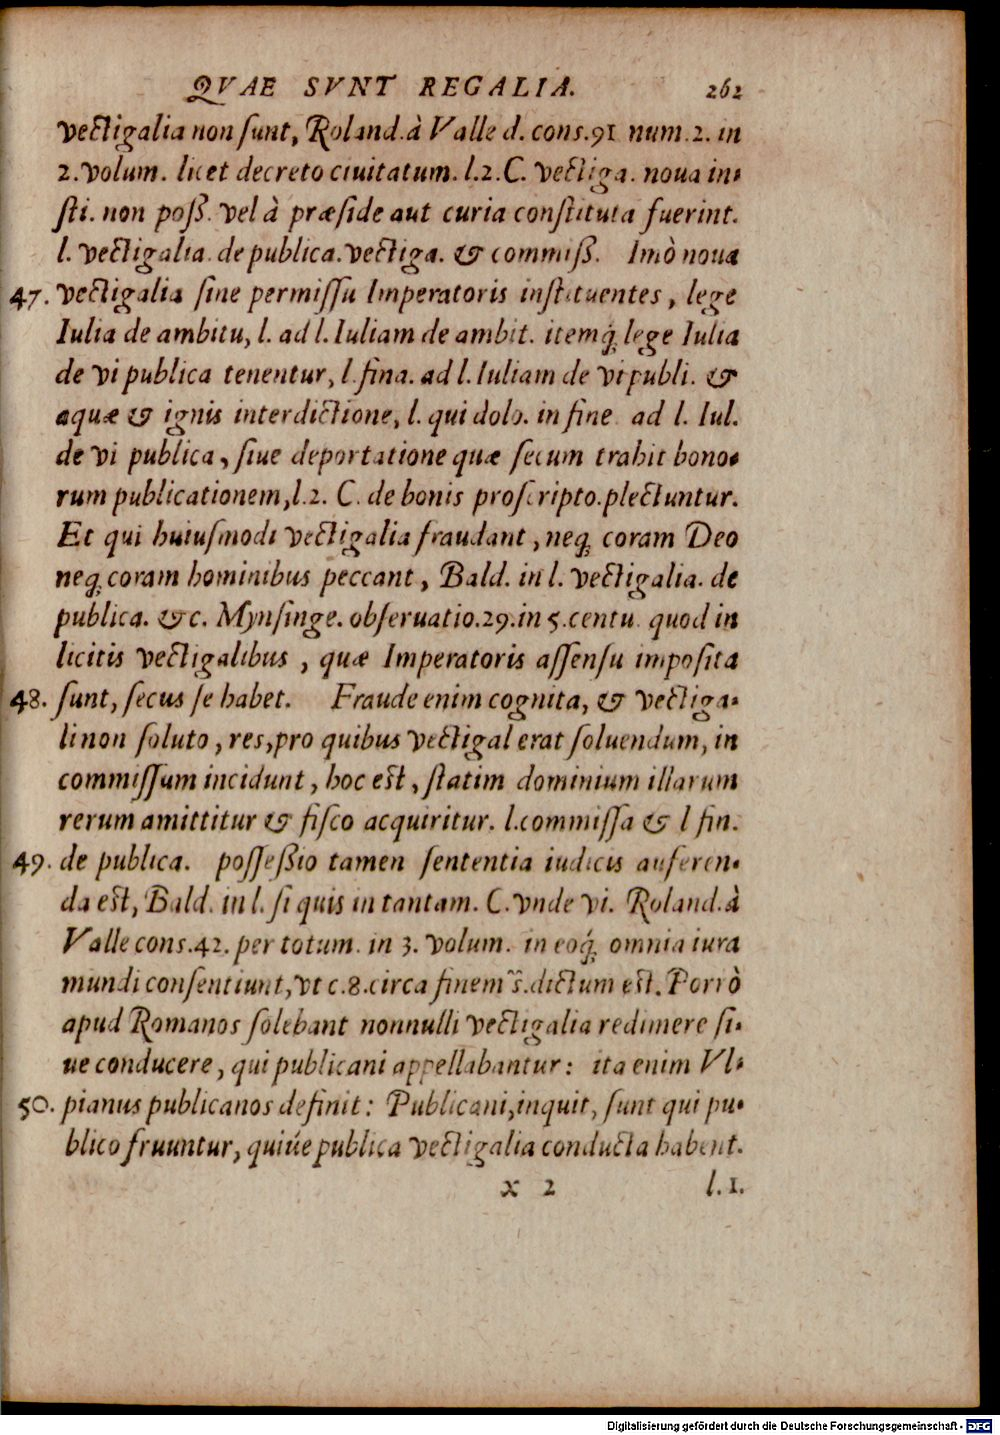 QVAE SVNT REGALIA. 262
vectigalia non ſunt, Roland.à Valle d. cons.91 num.2. in
2.volum. licet decreto ciuitatum. l.2.C. vectiga. noua in-
ſti. non poß. vel à præſide aut curia conſtituta fuerint.
l. vectigalia. de publica. vectiga. & commiß. Imò noua
47. vectigalia ſine permiſſu Imperatoris inſtituentes, lege
Iulia de ambitu, l. ad l. Iuliam de ambit. itemq́; lege Iulia
de vi publica tenentur, l.fina. ad l. Iuliam de vi publi. &
aquæ & ignis interdictione, l. qui dolo. in fine. ad l. Iul.
de vi publica, ſiue deportatione quæ ſecum trahit bono-
rum publicationem, l.2. C. de bonis proſcripto. plectuntur.
Et qui huiuſmodi vectigalia fraudant, neq; coram Deo
neq; coram hominibus peccant, Bald. in l. vectigalia. de
publica. &c. Mynſinge. obſeruatio.29.in 5.centu. quod in
licitis vectigalibus, quæ Imperatoris aſſenſu impoſita
48. ſunt, ſecus ſe habet. Fraude enim cognita, & vectiga-
li non ſoluto, res, pro quibus vectigal erat ſoluendum, in
commiſſum incidunt, hoc eſt, ſtatim dominium illarum
rerum amittitur & fiſco acquiritur. l.commiſſa & l fin.
49. de publica. poſſeßio tamen ſententia iudicis auferen-
da eſt, Bald. in l. ſi quis in tantam. C. vnde vi. Roland.à
Valle cons.42. per totum. in 3. volum. in eoq́; omnia iura
mundi conſentiunt, vt c.8.circa finem ſ. dictum eſt. Porrò
apud Romanos ſolebant nonnulli vectigalia redimere ſi-
ue conducere, qui publicani appellabantur: ita enim Vl-
50. pianus publicanos definit: Publicani, inquit, ſunt qui pu-
blico fruuntur, quiúe publica vectigalia conducta habent.
x 2 l.1.
Digitalisierung gefördert durch die Deutsche Forschungsgemeinschaft - DFG